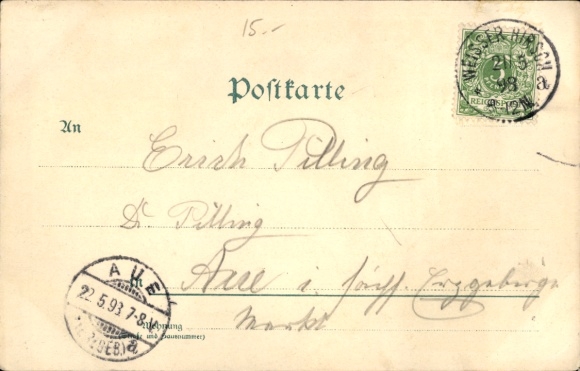 15.-
WEISSER HIRSCH
21 5
98
8-12N
a
REICHSPOST
Postkarte
An
Erich Pilling
Dr Pilling
Aue i. sächs. Erzgebirge
Markt
AUE
22.5.98 7-8
(ERZGEB.) a
Wohnung
(Straße und Hausnummer)